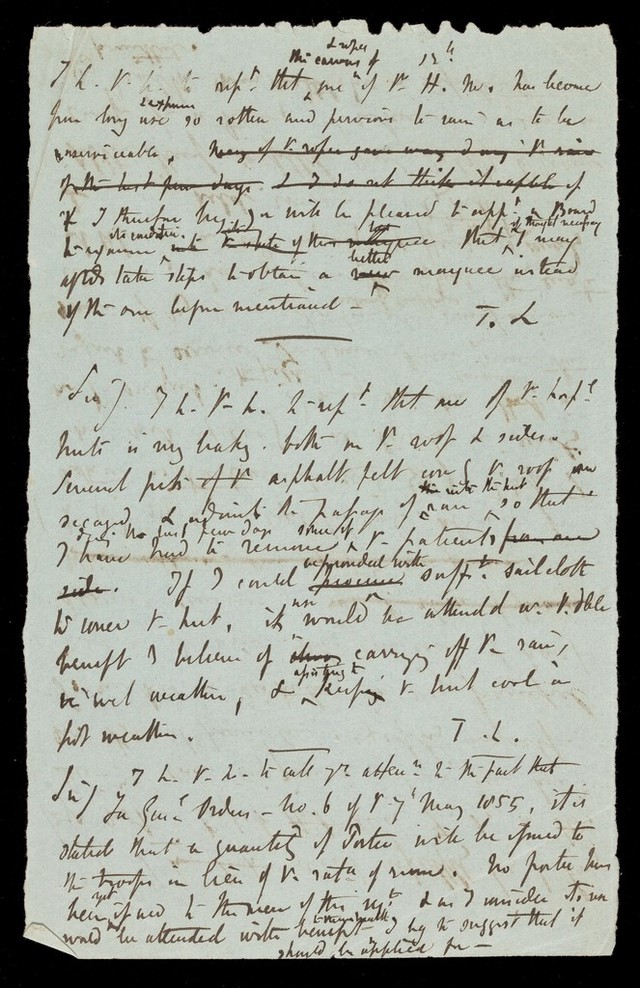 & ropes
the canvas of 13th
I h. V h. to rept that one of Vr H. M. has become
from long use & exposure so rotten and pervious to rain as to be
unserviceable. Many of Vr ropes gave way during Vr rain
of the last few days & I do not think it capable of
I therefore beg you will be pleased to appt a Board
to examine its condition. state of this marquee that if thought necessary I may
take steps to obtain a new better marquee instead
of the one before mentioned –
T. L
Sir) I h. V h. to rept that one of Vr hospl
huts is very leaky. both on Vr roof & sides.
Several parts of Vr asphalt felt covg Vr roof are
decayed & admit the passage of rain into the hut so that
during the last few days
I have had to remove some of Vr patients from one
side. If I could procure be provided with sufft sailcloth
to cover Vr hut, its use would be attended w.
benefit I believe of carrying off Vr rain,
in wet weather, & assisting to keeping Vr hut cool in
hot weather.
T. L.
Sir) I h. V h. to call yr attenn to the fact that
In Genl Orders – No. 6 of Vr 7th May 1855, it is
stated that a quantity of Porter will be issued to
the troops in lieu of Vr ratn of rum. No porter has
yet been issued to the men of this regt & as I consider its use
would be attended with benefit I beg to suggest that it
should be applied for –